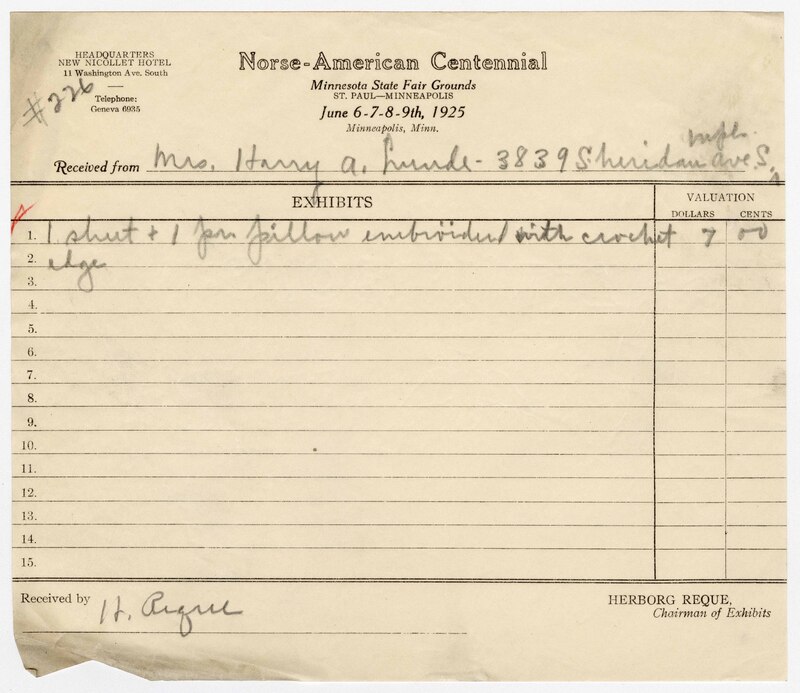 HEADQUARTERS
NEW NICOLLET HOTEL
11 Washington Ave. South
Telephone:
Geneva 6935
#226
Norse-American Centennial
Minnesota State Fair Grounds
ST. PAUL—MINNEAPOLIS
June 6-7-8-9th, 1925
Minneapolis, Minn.
mpls.
Received from Mrs. Harry A. Lunde - 3839 Sheridan Ave S.
EXHIBITS
VALUATION
DOLLARS CENTS
1. 1 sheet + 1 pr. pillow embroidered with crochet 7 00
2. edge
3.
4.
5.
6.
7.
8.
9.
10.
11.
12.
13.
14.
15.
Received by H. Reque
HERBORG REQUE,
Chairman of Exhibits